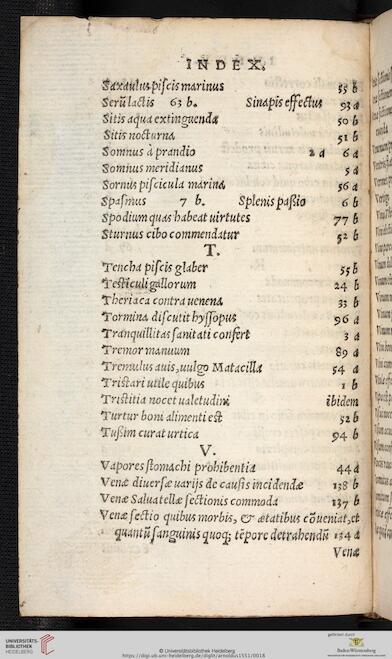 INDEX.
Saxaulus piscis marinus 55 b
Serū lactis 63 b. Sinapis effectus 93 a
Sitis aqua extinguenda 50 b
Sitis nocturna 51 b
Somnus à prandio 2 a 6 a
Somnus meridianus 5 a
Sornus piscicula marina 56 a
Spasmus 7 b. Splenis paßio 6 b
Spodium quas habeat uirtutes 77 b
Sturnus cibo commendatur 52 b
T.
Tencha piscis glaber 55 b
Testiculi gallorum 24 b
Theriaca contra uenena 33 b
Tormina discutit hyssopus 96 a
Tranquillitas sanitati confert 3 a
Tremor manuum 89 a
Tremulus auis, uulgo Matacilla 54 a
Tristari utile quibus 1 b
Tristitia nocet ualetudini ibidem
Turtur boni alimenti est 52 b
Tußim curat urtica 94 b
V.
Vapores stomachi prohibentia 44 a
Venæ diuersæ uarijs de causis incidendæ 138 b
Venæ Saluatellæ sectionis commoda 137 b
Venæ sectio quibus morbis, & ætatibus cōueniat, et
quantū sanguinis quoq; tēpore detrahendū 134 a
Venæ
UNIVERSITÄTS-
BIBLIOTHEK
HEIDELBERG
© Universitätsbibliothek Heidelberg
https://digi.ub.uni-heidelberg.de/diglit/arnoldus1551/0018
gefördert durch
Baden-Württemberg